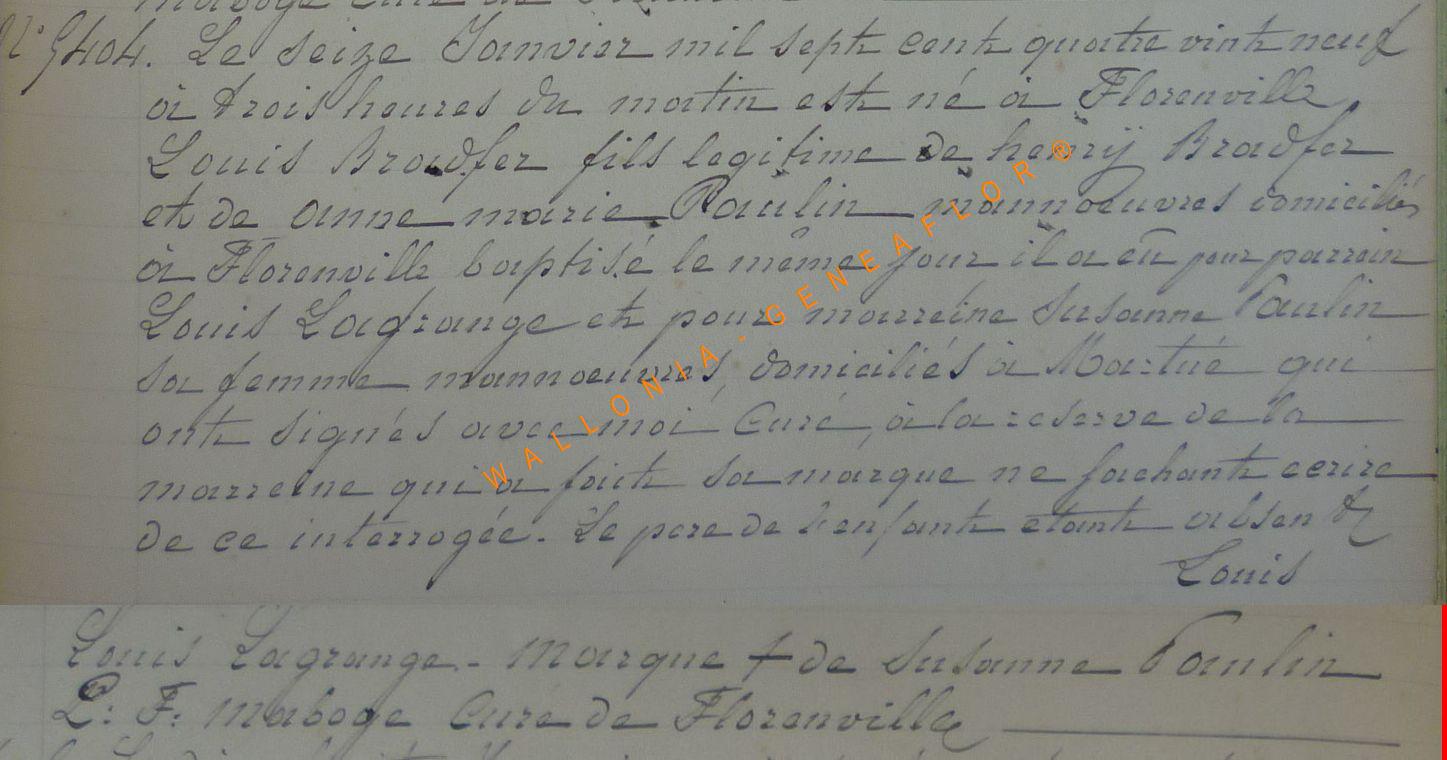 maboge Curé de
N° 5404. Le seize Janvier mil sept cent quatre vint neuf
à trois heures du matin est né à Florenville
Louis Bradfer fils legitime de henrij Bradfer
et de anne marie Paulin mannoeuvres domiciliés
à Florenville baptisé le même jour il a eû pour parrain
Louis Lagrange et pour marreine Susanne Paulin
sa femme mannoeuvres domiciliés à Martué qui
ont signés avec moi Curé, à la reserve de la
marreine qui a fait sa marque ne sachant ecrire
de ce interrogée. Le pere de l'enfant etant absent
Louis
Louis Lagrange. - Marque + de Susanne Paulin
L: F: Maboge Cure de Florenville
WALLONIA - GENEAFLOR ®